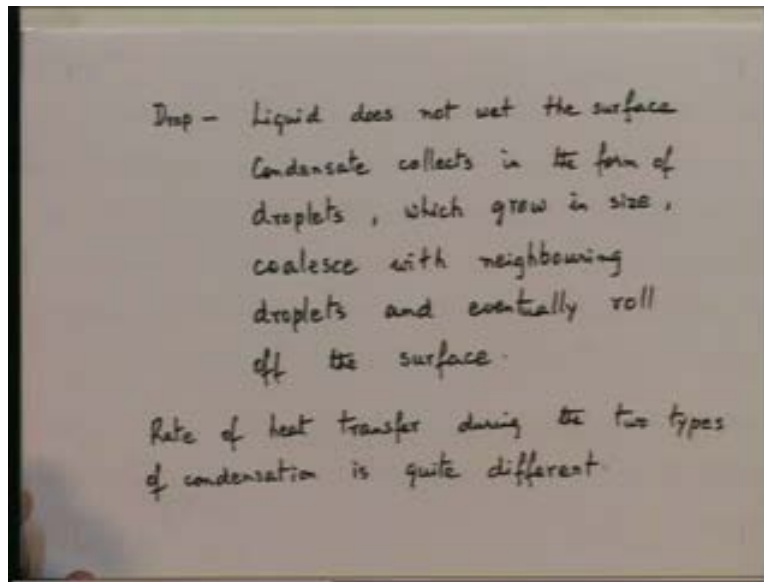 Drop - Liquid does not wet the surface
Condensate collects in the form of
droplets, which grow in size,
coalesce with neighbouring
droplets and eventually roll
off the surface.
Rate of heat transfer during the two types
of condensation is quite different.